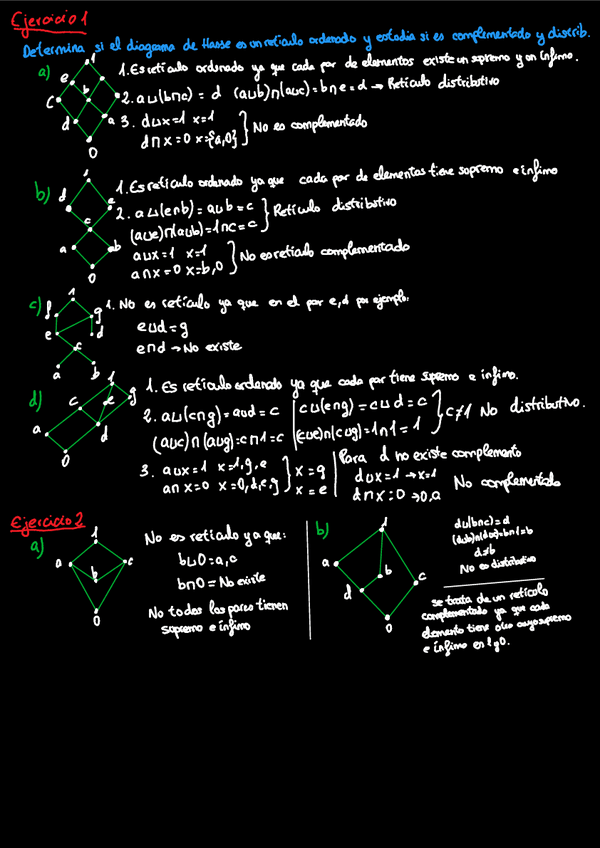 Ejercicio 1
Determina si el diagrama de Hasse es un retículo ordenado y estudia si es complementado y distrib.
a)
1
e
b
c
d
a
0
1. Es retículo ordenado ya que cada par de elementos existe un supremo y un ínfimo.
2. a⊔(b⊓c) = d (a⊔b)⊓(a⊔c)=b⊓e=d → Retículo distributivo
3. d⊔x=1 x=1
d⊓x=0 x={a,0} } No es complementado
b)
1
d
e
c
a
b
0
1. Es retículo ordenado ya que cada par de elementos tiene supremo e ínfimo
2. a⊔(e⊓b)=a⊔b=c
(a⊔e)⊓(a⊔b)=1⊓c=c } Retículo distributivo
a⊔x=1 x=1
a⊓x=0 x=b,0 } No es retículo complementado
c)
1
f
g
e
d
c
a
b
1. No es retículo ya que en el par e,d por ejemplo:
e⊔d=g
e⊓d → No existe
d)
1
c
e
g
a
d
0
1. Es retículo ordenado ya que cada par tiene supremo e ínfimo.
2. a⊔(c⊓g)=a⊔d=c | c⊔(e⊓g)=c⊔d=c
(a⊔c)⊓(a⊔g)=c⊓1=c | (c⊔e)⊓(c⊔g)=1⊓1=1 } c≠1 No distributivo.
3. a⊔x=1 x=1,g,e } x=g
a⊓x=0 x=0,d,e,g } x=e
Para d no existe complemento
d⊔x=1 → x=1
d⊓x=0 → 0,a
No complementado
Ejercicio 2
a)
1
a
c
b
0
No es retículo ya que:
b⊔0=a,c
b⊓0=No existe
No todos los pares tienen
supremo e ínfimo
b)
1
a
b
d
c
0
d⊔(b⊓c)=d
(d⊔b)⊓(d⊔c)=b⊓1=b
d≠b
No es distributivo
se trata de un retículo
complementado ya que cada
elemento tiene otro cuyo supremo
e ínfimo en 1 y 0.